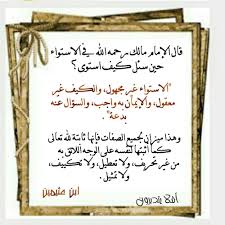 قال الإمام مالك رحمه الله في الاستواء
حين سئل كيف استوى؟
"الاستواء غير مجهول، والكيف غير
معقول، والإيمان به واجب، والسؤال عنه
بدعة".
وهذا ميزان لجميع الصفات فإنها ثابتة لله تعالى
كما أثبتها لنفسه على الوجه اللائق به
من غير تحريف، ولا تعطيل، ولا تكييف،
ولا تمثيل.
ابن عثيمين
أفلا يتدبرون